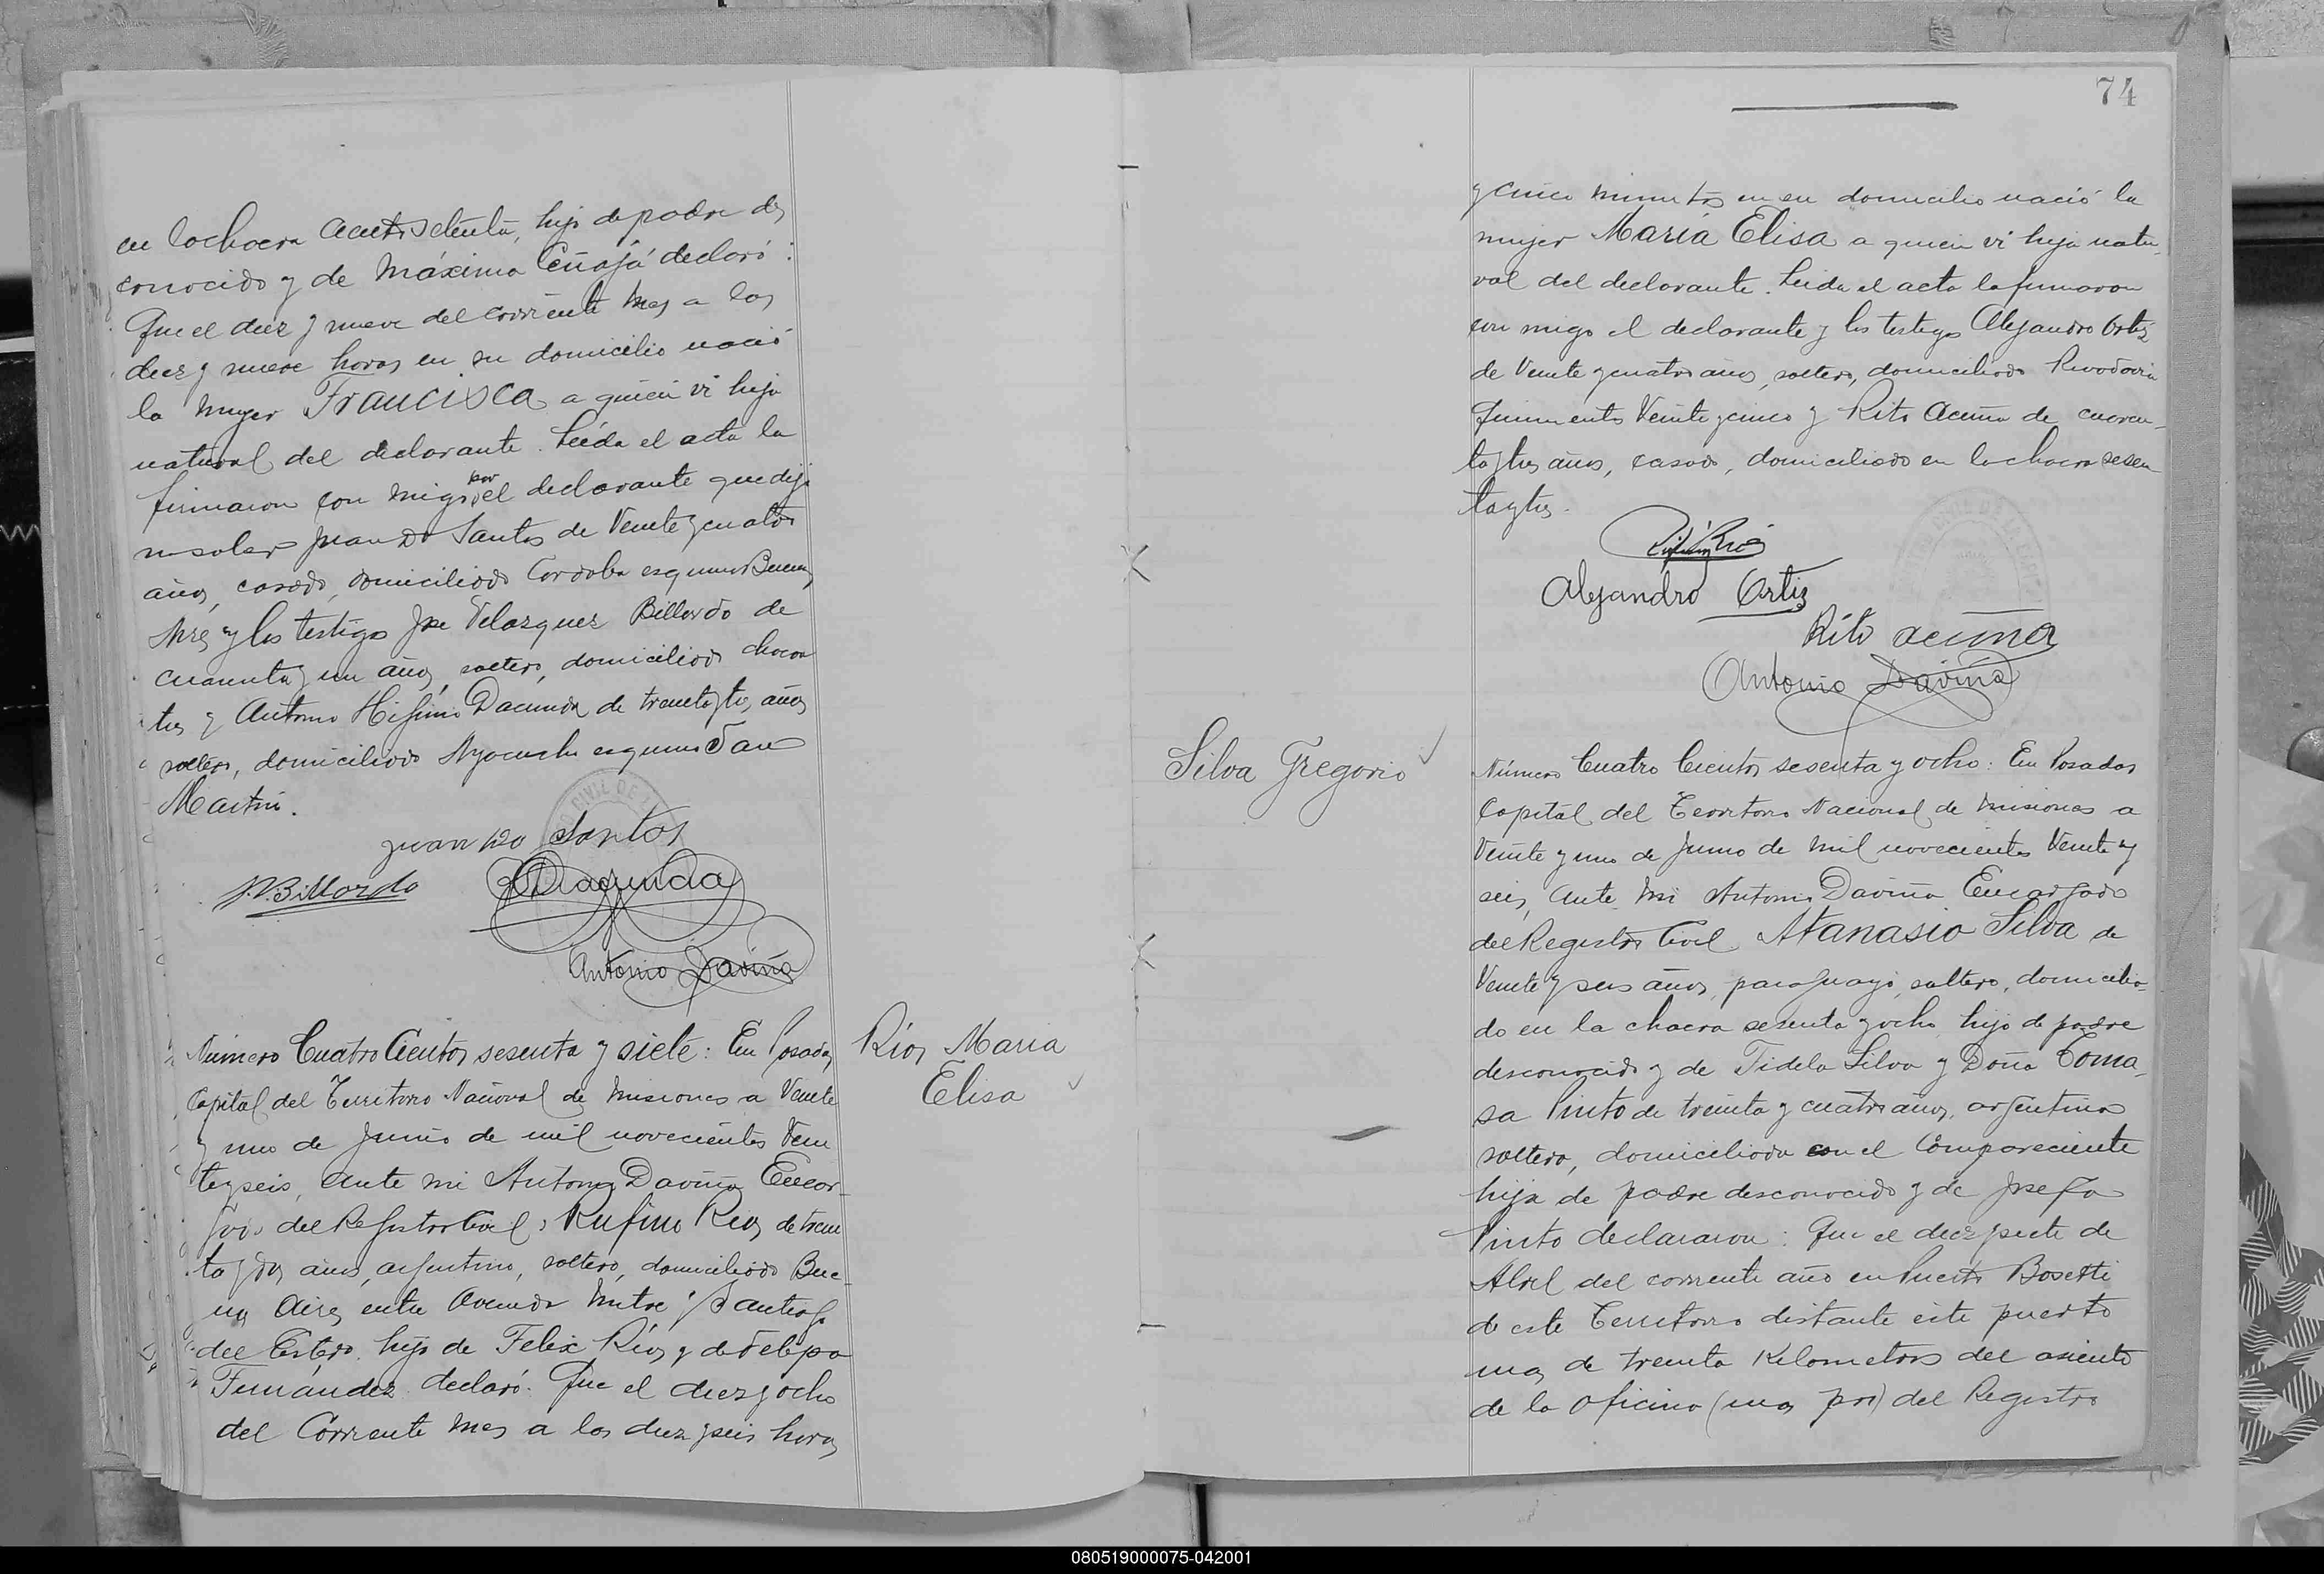 en la chacra ciento setenta, hijo de padre des
conocido y de Máxima declaró:
Que el diez y nueve del corriente mes a las
diez y nueve horas en su domicilio nació
la mujer Francisca a quien vi hija
natural del declarante. Leída el acta la
firmaron con migo por el declarante que dijo
no saber Juan Do Santos de Veinte y cuatro
años, casado, domiciliado Cordoba esquina Buenos
Aires y los testigos Jose Velazquez Billordo de
cuarenta y un años, soltero, domiciliado chacra
tres y Antonio Higinio Dacunda de treinta y tres años
soltero, domiciliado Ayacucho esquina San
Martin.
Juan Do Santos
J.V. Billordo
Dacunda
Antonio Daviña
Número Cuatro Cientos sesenta y siete: En Posadas
Capital del Territorio Nacional de Misiones a Veinte
y uno de Junio de mil novecientos Vein
te y seis, ante mi Antonio Daviña Encar-
gado del Registro Civil, Rufino Rios de trein
ta y dos años, argentino, soltero, domiciliado Bue-
nos Aires entre Avenida Mitre y Santiago
del Estero, hijo de Felix Ríos y de Felipa
Fernández declaró: Que el diez y ocho
del Corriente mes a las diez y seis horas
Ríos Maria
Elisa
74
y cinco minutos en su domicilio nació la
mujer María Elisa a quien vi hija natu-
ral del declarante. Leida el acta la firmaron
con migo el declarante y los testigos Alejandro Ortiz
de Veinte y cuatro años, soltero, domiciliado Rivadavia
quinientos Veinte y cinco y Rito Acuña de cuaren-
ta y tres años, casado, domiciliado en la chacra sesen-
ta y tres.
Rufino Rios
Alejandro Ortiz
Rito Acuña
Antonio Daviña
Silva Gregorio
Número Cuatro Cientos sesenta y ocho: En Posadas
Capital del Territorio Nacional de Misiones a
Veinte y uno de Junio de mil novecientos Veinte y
seis, ante mi Antonio Daviña Encargado
del Registro Civil, Atanasio Silva de
Veinte y seis años, paraguayo, soltero, domicilia-
do en la chacra sesenta y ocho, hijo de padre
desconocido y de Fidela Silva y Doña Toma-
sa Pinto de treinta y cuatro años, argentina
soltera, domiciliada con el Compareciente
hija de padre desconocido y de Josefa
Pinto declararon: Que el diez y siete de
Abril del corriente año en Puerto Bosetti
de este Territorio distante este puerto
mas de treinta Kilometros del asiento
de la oficina (mas pro) del Registro
080519000075-042001